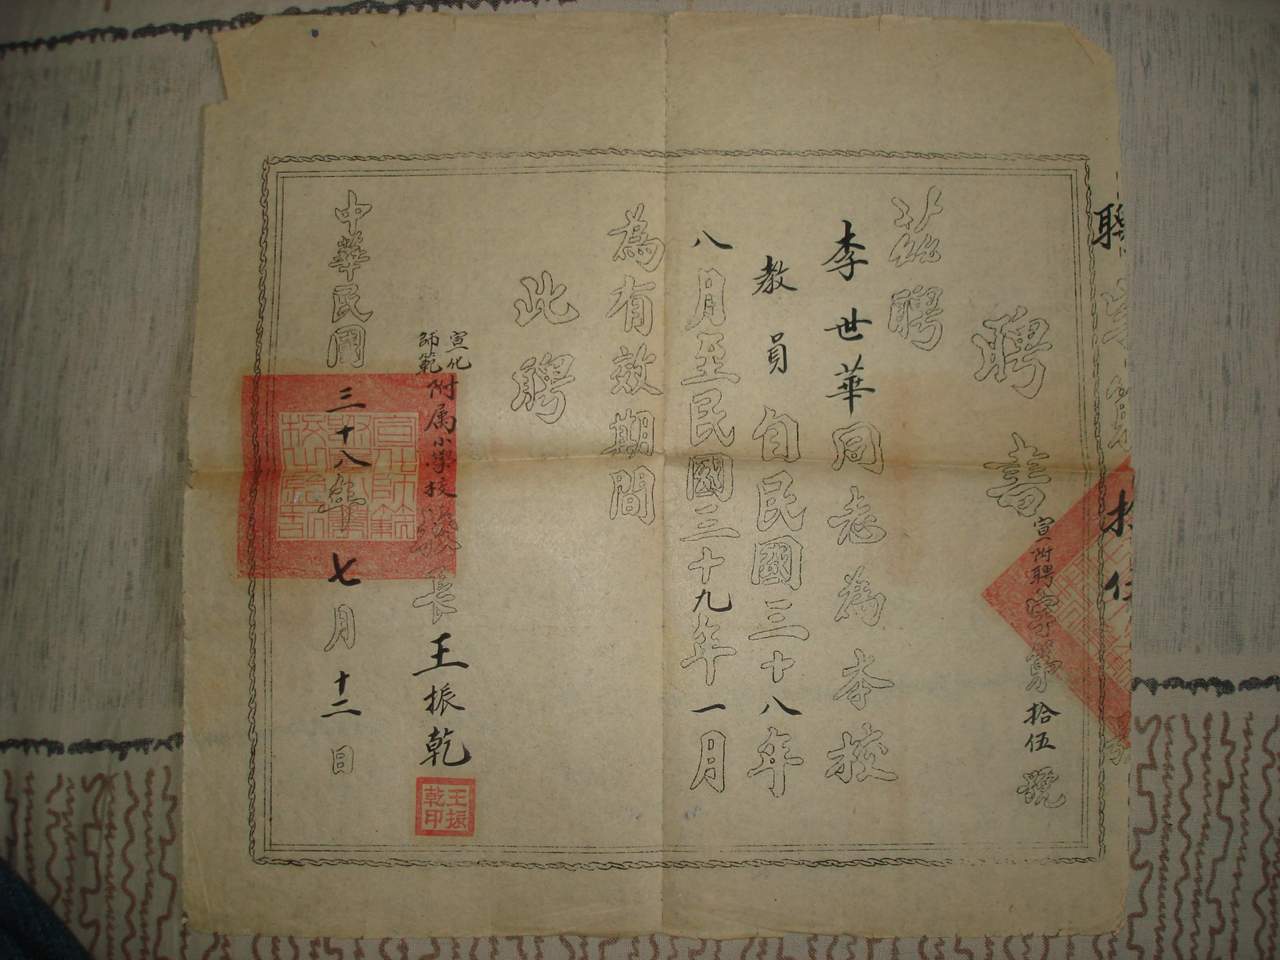 聘書
宣附聘字第拾伍號
茲聘
李世華同志為本校
教員自民國三十八年
八月至民國三十九年一月
為有效期間
此聘
宣化師範附属小學校校長王振乾
王振乾印
中華民國三十八年七月十二日